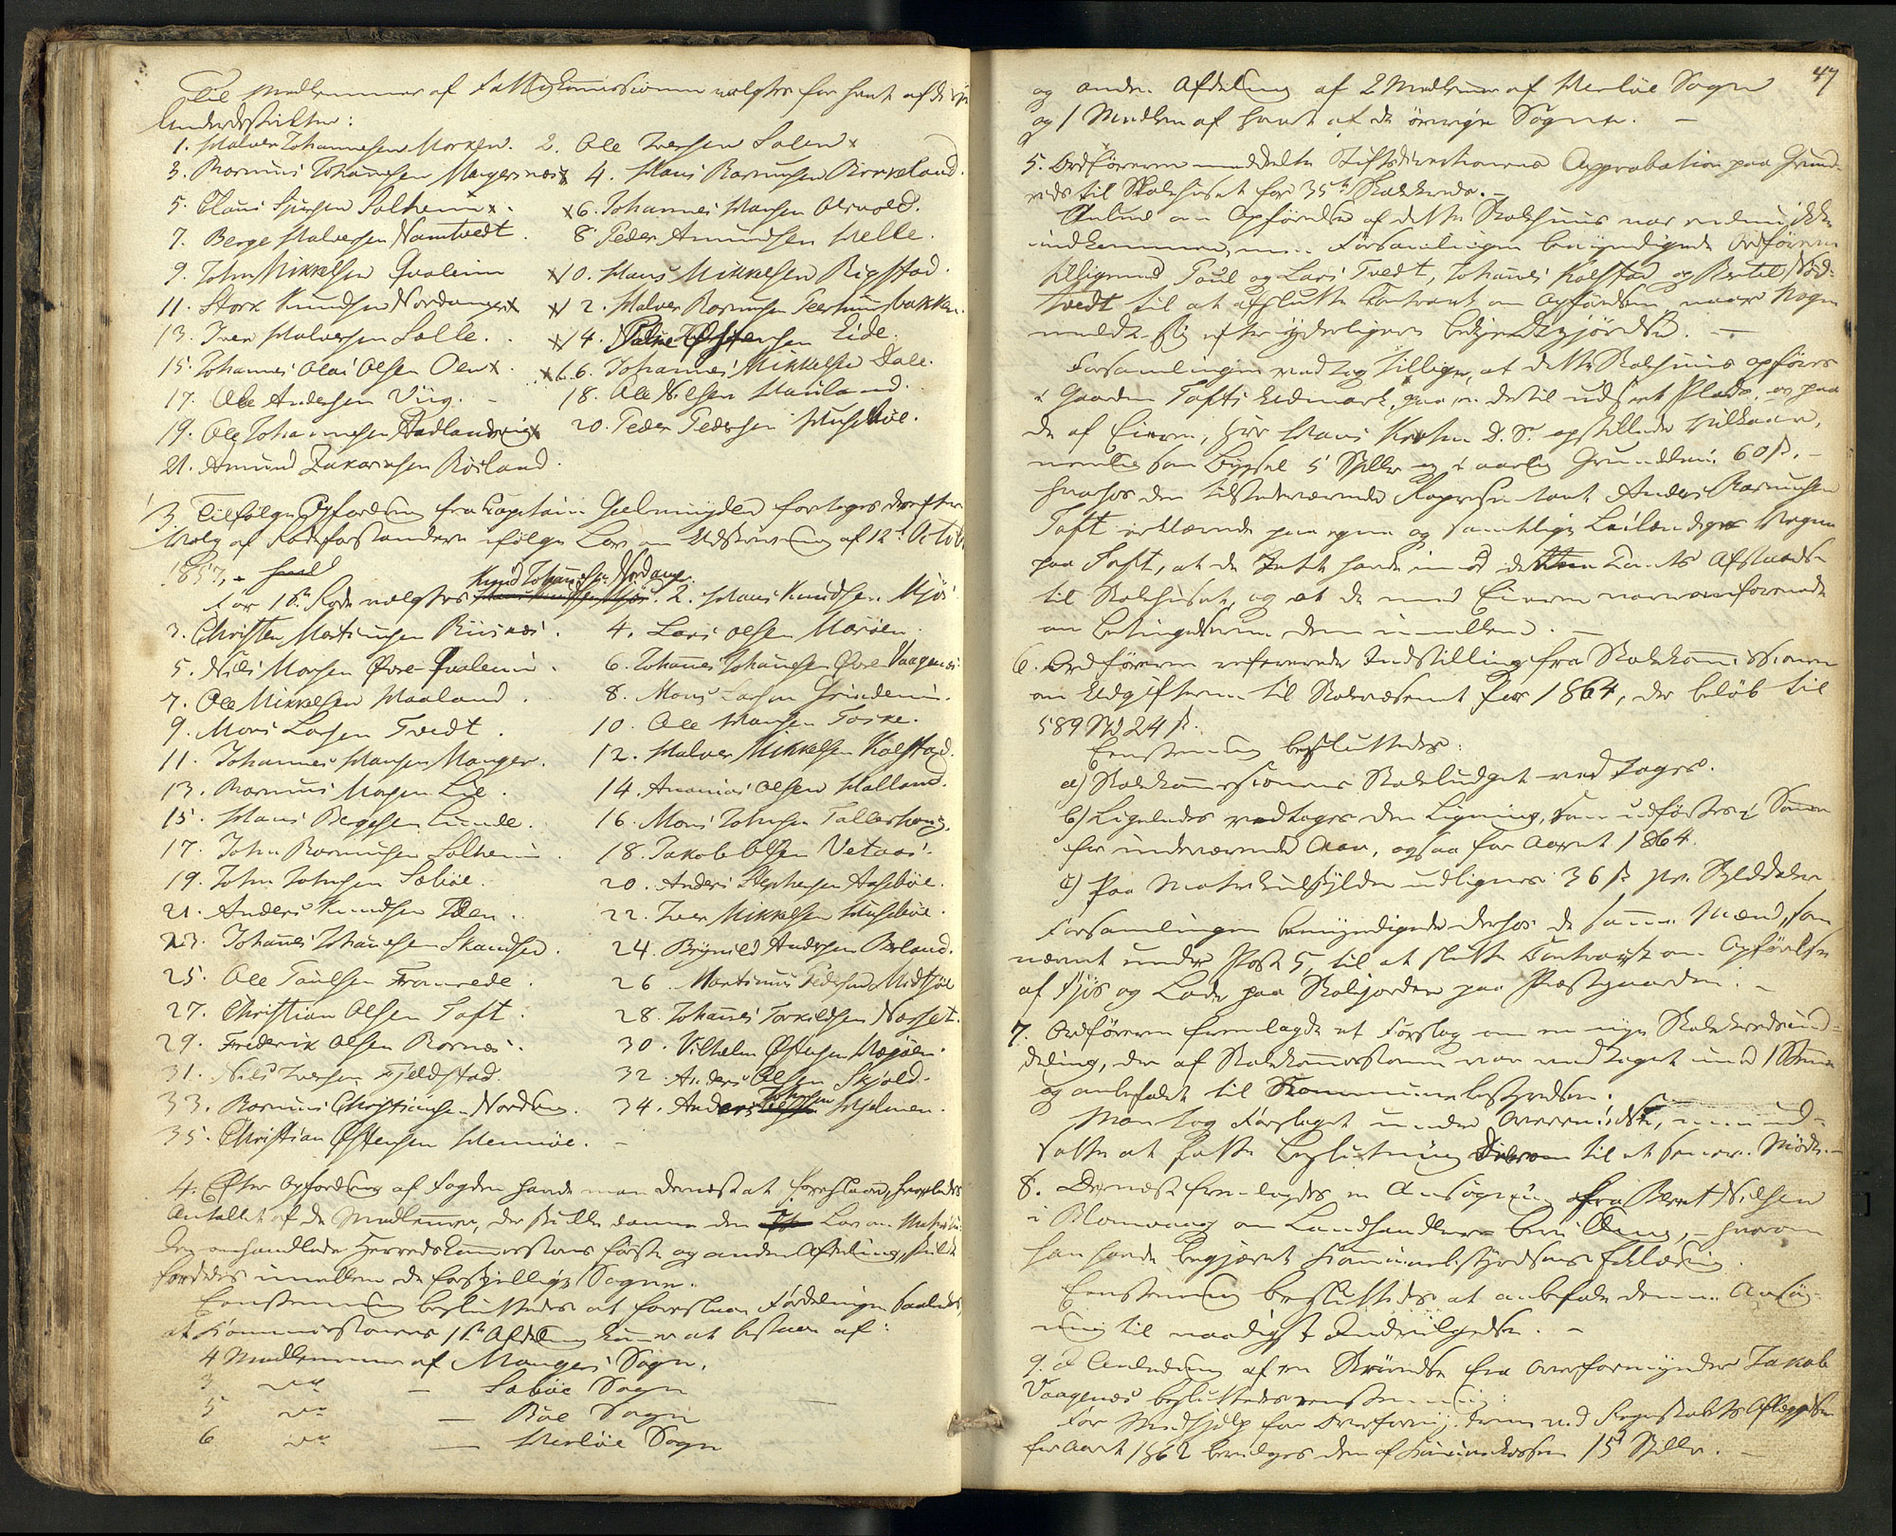 Til Medlemmer af Fattigkommissionen valgtes for hvert af de
Underdistrikter:
1. Halvor Johannessen Morken. 2. Ole Iversen Solem x
3. Rasmus Johannessen Mangersnæs x 4. Hans Rasmussen Birkeland.
5. Claus Solheim x. x6. Johannes Hansen
7. Berge Halvorsen Namtvedt. 8. Peder Amundsen Helle.
9. John Mikkelsen Qvaleim x10. Hans Mikkelsen Rigstad.
11. Stork Knudsen Nordanger x x12. Halvor Rasmussen
13. Iver Halvorsen Solle. x14. Eide
15. Johannes Olai Olsen Oen x. x16. Johannes Mikkelsen Dale.
17. Ole Andersen Viig. – 18. Ole Nilsen Hauland.
19. Ole Johannessen Hadlandsvig x 20. Peder Pedersen Husebøe.
21. Amund Zakariasen Røsland.
3. Tilfølge Opfordring fra Capitain Gulmeyden foretoges derefter
Valg af Rodeforstandere ifølge Lov om Udskrivning af 12te Octob.
1857,
For 1ste Rode valgtes Knud Johannessen Nordanger. 2. Hans Knudsen Mjøs
3. Christen Mortensen Riisnæs. 4. Lars Olsen Marøen
5. Nils Monsen Øvre Qvaleim. 6. Johannes Johannessen Øvre Vaagenæs
7. Ole Mikkelsen Hauland. 8. Mons Larsen Grindem.
9. Mons Larsen Tvedt. 10. Ole Hansen Toske.
11. Johannes Hansen Manger. 12. Halvor Mikkelsen Kolstad.
13. Rasmus Monsen Lie. 14. Ananias Olsen Halland.
15. Hans Bergesen Lunde. 16. Mons Johnsen Tallershoug.
17. John Rasmussen Solheim. 18. Jakob Olsen Vetaas.
19. John Johnsen Sæbøe. 20. Anders Stephensen Aasebøe.
21. Anders Knudsen Oen. 22. Iver Mikkelsen Husebøe.
23. Johannes Johannessen Skandsen. 24. Brynild Andersen Børland.
25. Ole Paulsen Fromrede. 26. Martinus Pedersen Midtøe
27. Christian Olsen Toft. 28. Johannes Torkildsen Nærset.
29. Frederik Olsen Rosnæs. 30. Vilhelm Østensen Hæsøen.
31. Nils Iversen Fjeldstad. 32. Anders Olsen Skjold.
33. Rasmus Christiansen Nordeng. 34. Anders Johnsen Hjelmen.
35. Christian Østensen Hernøe. –
4. Efter Opfordring af Fogden havde man dernæst at foreslaae, hvorledes
Antallet af de Medlemmer, der skulle danne den i Lov om
den omhandlede Herredskommissions første og anden Afdeling, skulde
fordeles imellem de forskjellige Sogne.
Eenstemmig besluttedes at foreslaae Fordelingen saaledes,
at Kommissionens 1ste Afdeling kommer at bestaae af:
4 Medlemmer af Mangers Sogn.
3 do – Sæbøe Sogn
5 do – Bøe Sogn
6 do – Herløe Sogn
47
og anden Afdeling af 2 Medlemmer af Herløe Sogn
og 1 Medlem af hvert af de øvrige Sogne. –
5. Ordføreren meddelte Stiftsdirectionens Approbation paa Grund-
reds til Skolehuset for 35te Skolekreds. –
Anbud om Opførelse af dette Skolehuus var endnu ikke
indkommen, men Forsamlingen bemyndigede Ordføreren
tilligemed Poul og Lars Tvedt, Johannes Kolstad og Bertel Nød-
tvedt til at afslutte Contract om Opførelsen naar Nogen
meldte sig efter yderligere bekjendtgjørelse. –
Forsamlingen vedtog tillige, at dette Skolehuus opføres
i Gaarden Tofts Udmark, paa en dertil udseet Plads, og paa
de af Eieren, Herr Hans Krohn D. S. opstillede Vilkaar,
nemlig som Bygsel 5 Spdlr og i aarlig Grundleie 60 ß. –
hvorhos den tilstedeværende Repræsentant Anders Rasmussen
Toft erklærede paa egne og samtlige Leilændinges Vegne
paa Toft, at de Intet havde imod denne Tomts Afstaaelse
til Skolehuset, og at de med Eieren vare omforenede
om Betingelserne dem imellem. –
6. Ordføreren refererede Indstilling fra Skolekommissionen
om Udgifterne til Skolevæsenet for 1864, der beløb til
589 Spd 24 ß.
Eenstemmig besluttedes:
a) Skolekommissionens Skolebudget vedtages.
b) Ligeledes vedtages den Ligning, som udførtes i Sommer
for indeværende Aar, ogsaa for Aaret 1864.
c) Paa Matrikulskylden udlignes 36 ß pr. Skylddaler.
Forsamlingen bemyndigede derhos de samme Mænd, som
nævnt under Post 5, til at slutte Contract om Opførelse
af Fjøs og Lade paa Skolejorden paa Præstegaarden. –
7. Ordføreren fremlagde et Forslag om en nye Skolekredsind-
deling, der af Skolekommissionen var vedtaget imod 1 Stemme
og anbefalet til Kommunebestyrelsen.
Man tog Forslaget under Overveielse, men ud-
satte at fatte Beslutning derom til et senere Møde. –
8. Dernæst fremlagdes en Ansøgning fra Bernt Nilsen
i Blomvaag om Landhandler-bevilling, – hvorom
han havde begjæret Kommunebestyrelsens Erklæring.
Eenstemmig besluttedes at anbefale denne Ansøg-
ning til naadigst Indvilgelse. –
9. I Anledning af en Skrivelse fra Overformynder Jakob
Vaagenæs besluttedes eenstemmig:
For Medhjælp for Overformynderen ved Regnskabets Aflæggelse
for Aaret 1862 bevilges den af Kommunekassen 15 Spdlr. –